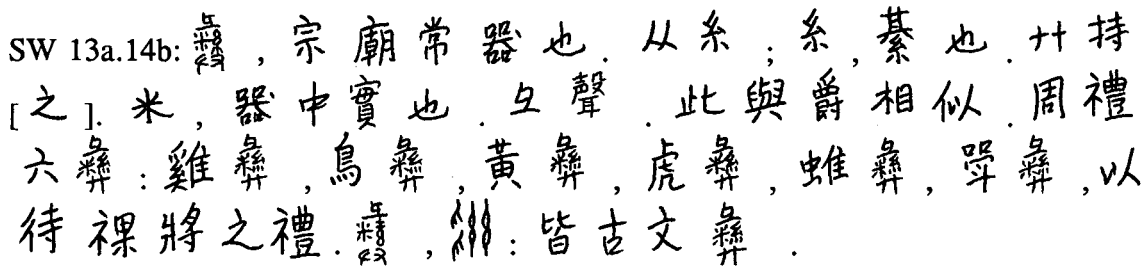 SW 13a.14b: , 宗廟常器也. 从糸; 糸, 綦也. 廾持
[之]. 米, 器中實也. 彑聲. 此與爵相似. 周禮
六彝: 雞彝, 鳥彝, 黃彝, 虎彝, 蜼彝, 斝彝, 以
待祼將之禮. , : 皆古文彝.